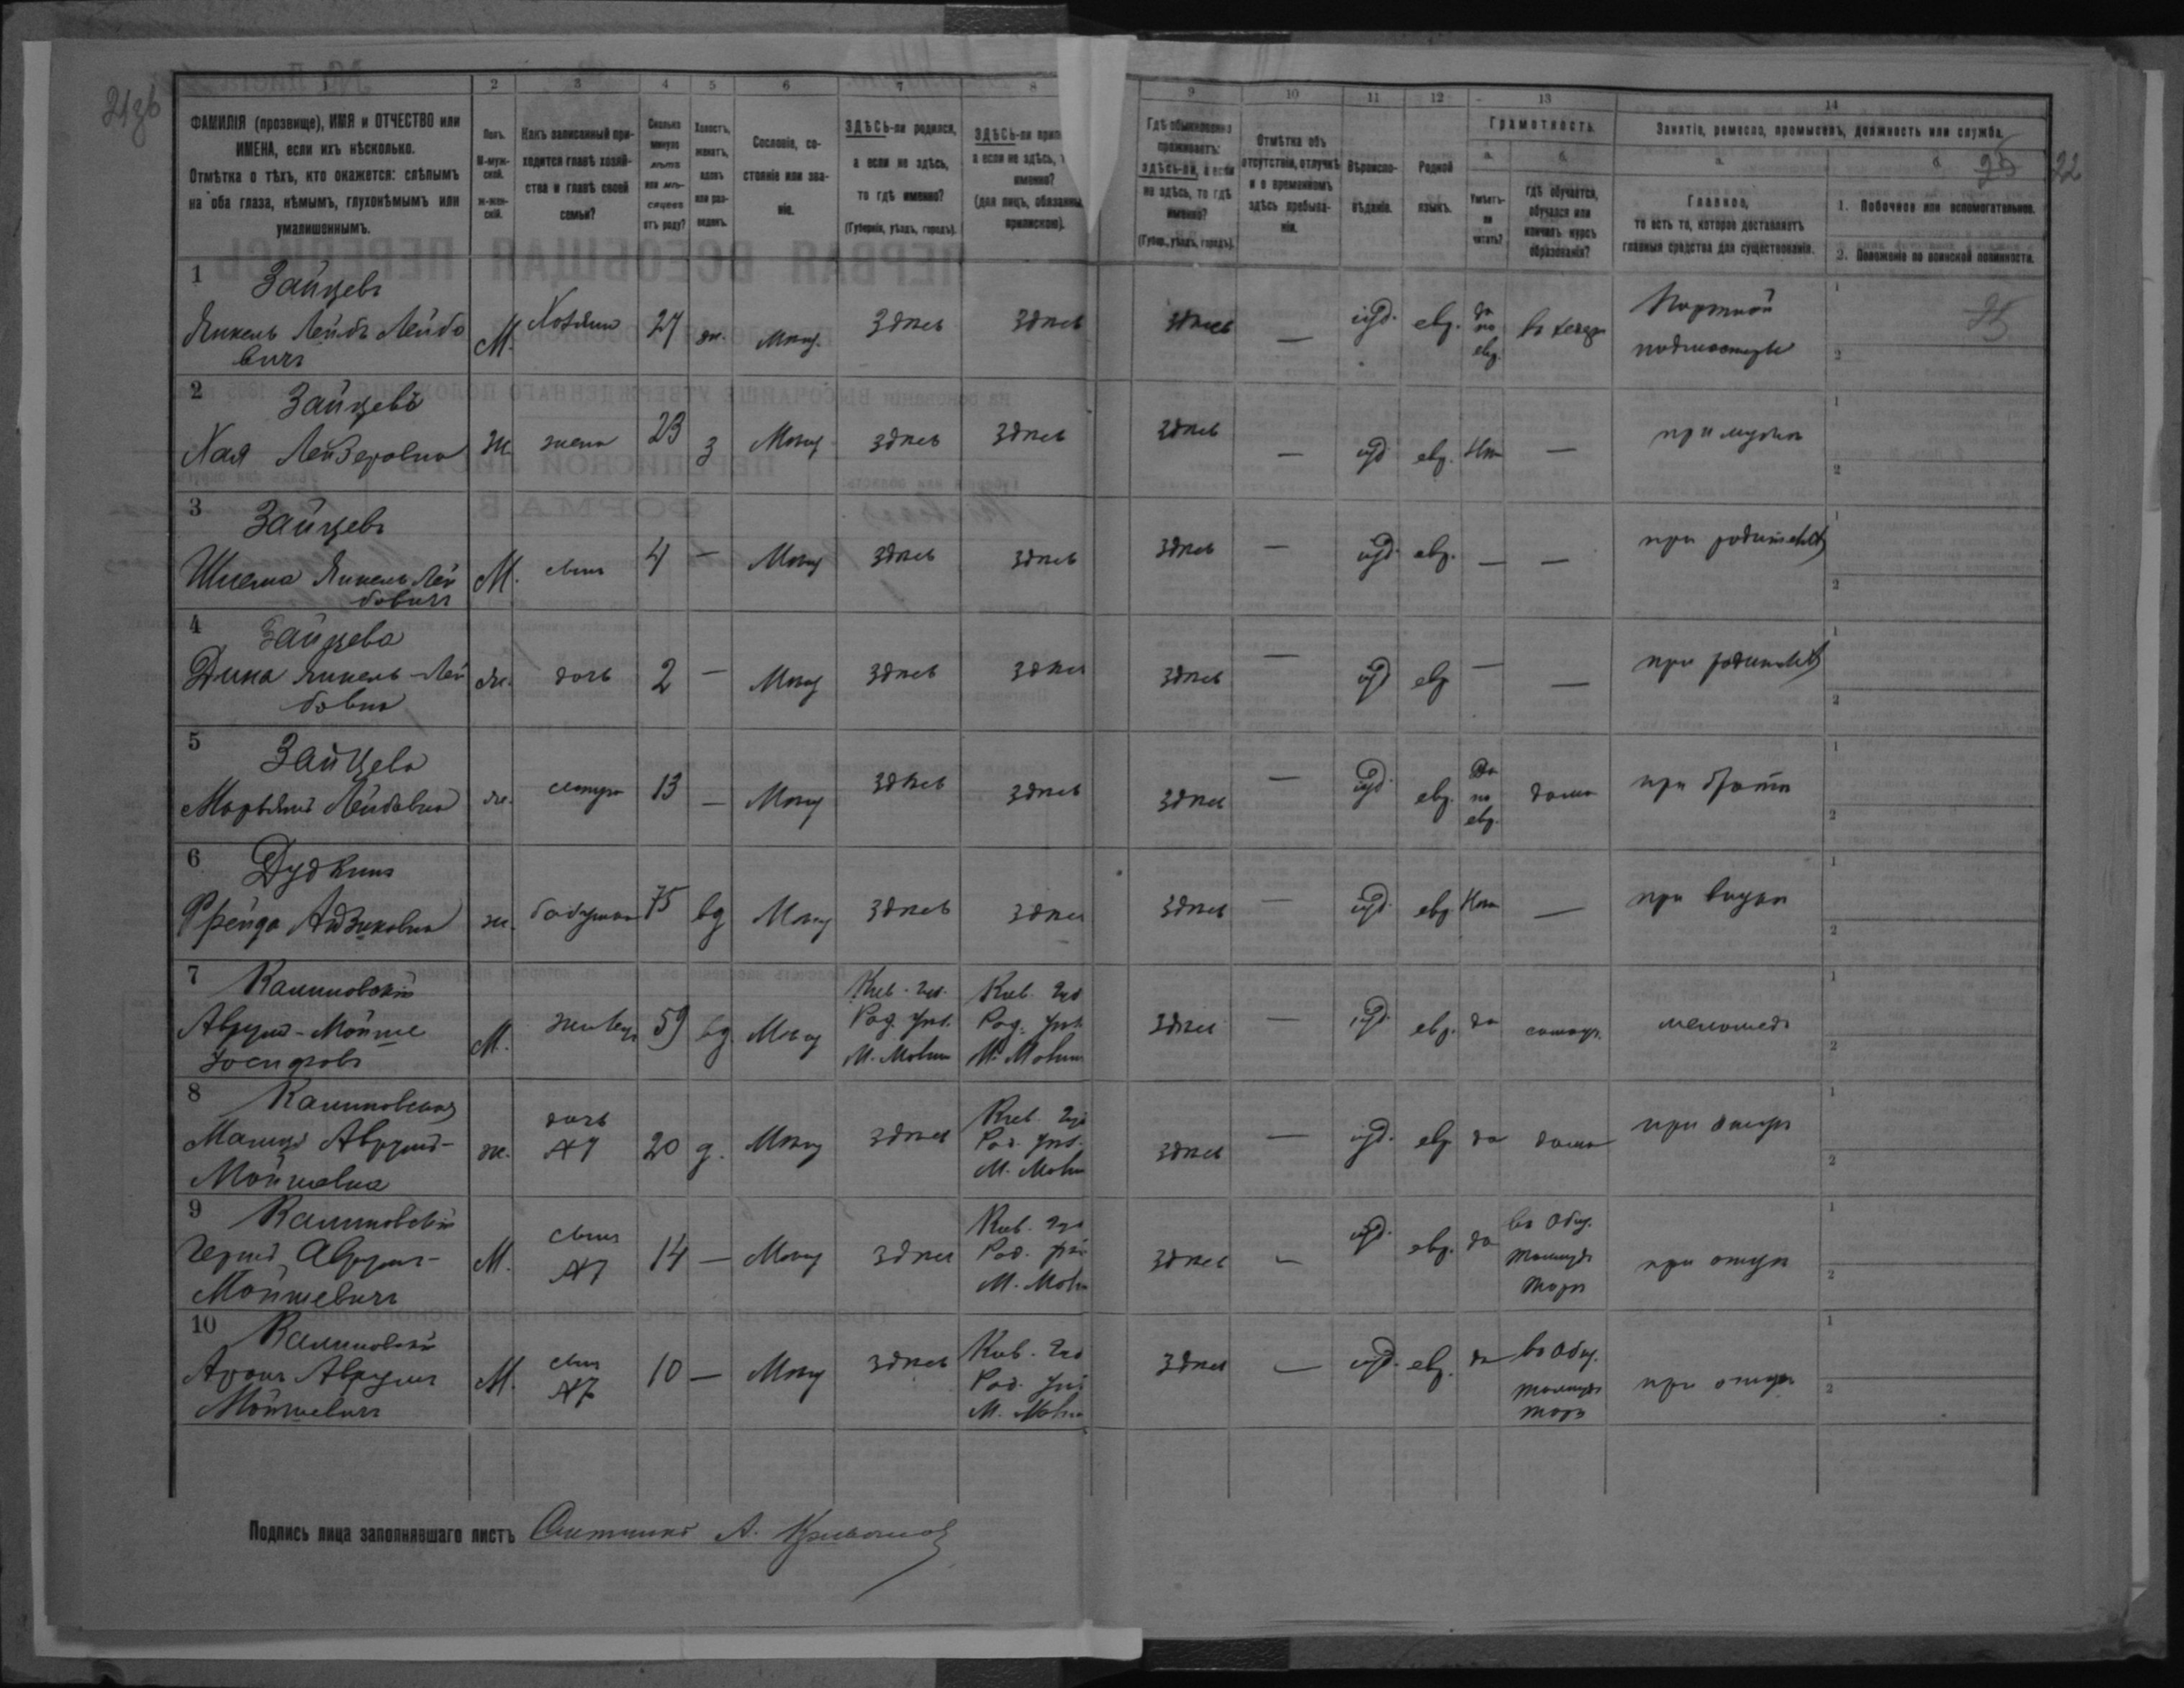 1 2 3 4 5 6 7 8 9 10 11 12 13 14
ФАМИЛІЯ (прозвище), ИМЯ и ОТЧЕСТВО или ИМЕНА, если ихъ нѣсколько.
Отмѣтка о тѣхъ, кто окажется: слѣпымъ на оба глаза, нѣмымъ, глухонѣмымъ или умалишеннымъ.
Полъ. М-мужской. Ж-женскій.
Какъ записанный приходится главѣ хозяйства и главѣ своей семьи?
Сколько минуло лѣтъ или мѣсяцевъ отъ роду?
Холостъ, женатъ, вдовъ или разведенъ.
Сословіе, состояніе или званіе.
ЗДѢСЬ-ли родился, а если не здѣсь, то гдѣ именно?
(Губернія, уѣздъ, городъ).
ЗДѢСЬ-ли припи
а если не здѣсь,
именно?
(для лицъ, обязанны
припискою).
Гдѣ обыкновенно проживаетъ: здѣсь-ли, а если не здѣсь, то гдѣ именно?
(Губер., уѣздъ, городъ).
Отмѣтка объ отсутствіи, отлучкѣ и о временномъ здѣсь пребываніи.
Вѣроисповѣданіе.
Родной языкъ.
Грамотность.
а. Умѣетъ-ли читать?
б. гдѣ обучается, обучался или кончилъ курсъ образованія?
Занятіе, ремесло, промыселъ, должность или служба.
а. Главное, то есть то, которое доставляетъ главныя средства для существованія.
б. 25 22
1. Побочное или вспомогательное.
2. Положеніе по воинской повинности.
1 Зайцевъ
Янкель Лейбъ Лейбо
вичъ М. Хозяинъ 27 ж. Мѣщ. Здѣсь Здѣсь Здѣсь — іуд. евр. да по евр. въ хедерѣ Портной подмастерье
2 Зайцева
Хая Лейзеровна ж. жена 23 з Мѣщ здѣсь здѣсь здѣсь — іуд евр. Нѣт — при мужѣ
3 Зайцевъ
Шлема Янкель Лей
бовичъ М. сынъ 4 — Мѣщ здѣсь здѣсь здѣсь — іуд. евр. — — при родителях
4 Зайцева
Дина Янкель-Лей
бовна ж. дочь 2 — Мѣщ здѣсь здѣсь здѣсь — іуд евр — — при родителях
5 Зайцева
Марьяша Лейбовна ж. сестра 13 — Мѣщ здѣсь здѣсь здѣсь — іуд. евр. Да по евр. дома при братѣ
6 Дудкина
Фрейда ж. бабушка 75 вд Мѣщ здѣсь здѣсь здѣсь — іуд. евр. Нѣт — при внукѣ
7 Калиновскій
Аврумъ-Мойше
Іосифовъ М. жилецъ 59 вд. Мѣщ Кіев. губ. Рад. уѣз. Кіев. губ Рад. уѣз. здѣсь — іуд. евр. да меламедъ
8 Калиновская
Аврумъ-
Мойшевна ж. дочь №7 20 д. Мѣщ здѣсь Кіев. губ Рад. уѣз. здѣсь — іуд. евр да дома при отцѣ
9 Калиновскій
Герш Аврумъ-
Мойшевичъ М. сынъ №7 14 — Мѣщ здѣсь Кіев. губ Рад. здѣсь — іуд. евр. да въ Общ. талмудъ торѣ при отцѣ
10 Калиновскій
Аронъ Аврумъ
Мойшевичъ М. сынъ №7 10 — Мѣщ здѣсь Кіев. губ Рад. уѣз здѣсь — іуд. евр. да въ Общ. талмудъ торѣ при отцѣ
Подпись лица заполнявшаго листъ Счетчикъ А.